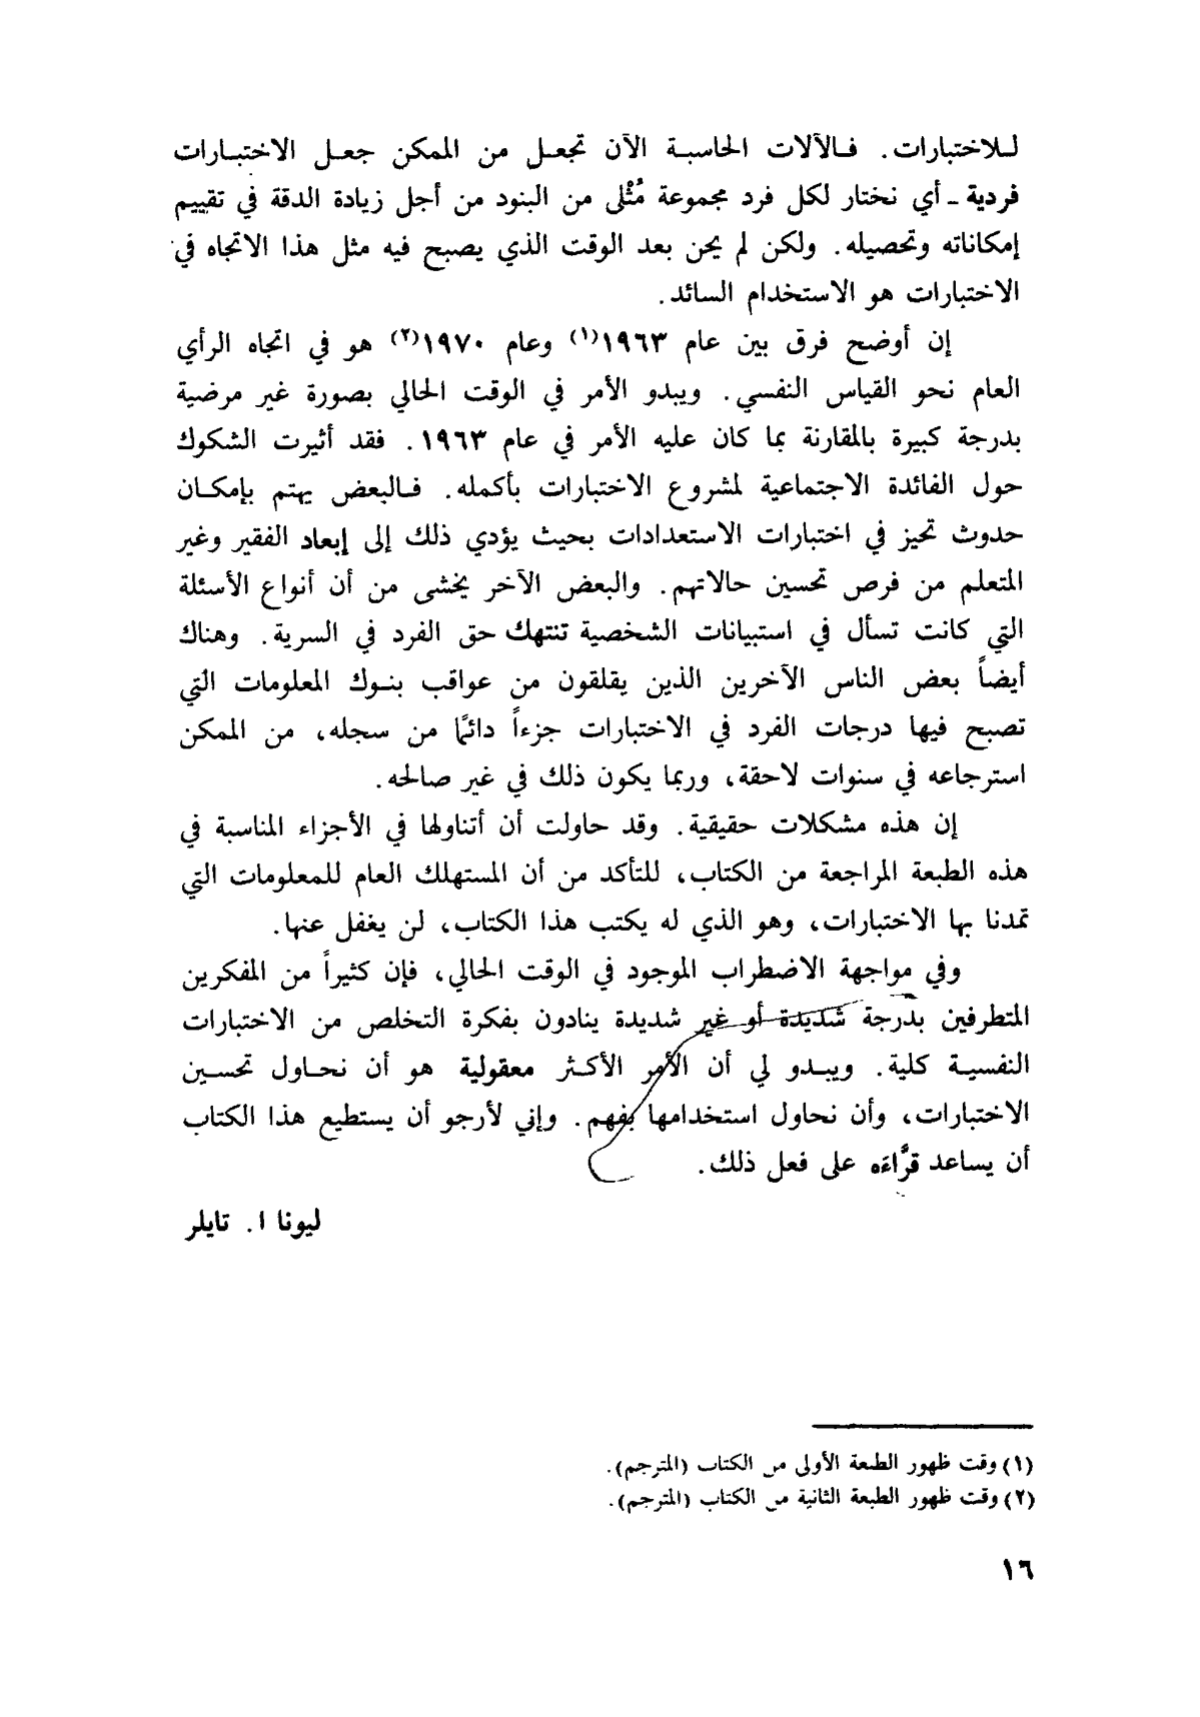 للاختبارات. فالآلات الحاسبة الآن تجعل من الممكن جعل الاختبارات
فردية - أي نختار لكل فرد مجموعة مُثْلى من البنود من أجل زيادة الدقة في تقييم
إمكاناته وتحصيله. ولكن لم يحن بعد الوقت الذي يصبح فيه مثل هذا الاتجاه في
الاختبارات هو الاستخدام السائد.
إن أوضح فرق بين عام ١٩٦٣(١) وعام ١٩٧٠(٢) هو في اتجاه الرأي
العام نحو القياس النفسي. ويبدو الأمر في الوقت الحالي بصورة غير مرضية
بدرجة كبيرة بالمقارنة بما كان عليه الأمر في عام ١٩٦٣. فقد أثيرت الشكوك
حول الفائدة الاجتماعية لمشروع الاختبارات بأكمله. فالبعض يهتم بإمكان
حدوث تحيز في اختبارات الاستعدادات بحيث يؤدي ذلك إلى إبعاد الفقير وغير
المتعلم من فرص تحسين حالاتهم. والبعض الآخر يخشى من أن أنواع الأسئلة
التي كانت تسأل في استبيانات الشخصية تنتهك حق الفرد في السرية. وهناك
أيضاً بعض الناس الآخرين الذين يقلقون من عواقب بنوك المعلومات التي
تصبح فيها درجات الفرد في الاختبارات جزءاً دائمًا من سجله، من الممكن
استرجاعه في سنوات لاحقة، وربما يكون ذلك في غير صالحه.
إن هذه مشكلات حقيقية. وقد حاولت أن أتناولها في الأجزاء المناسبة في
هذه الطبعة المراجعة من الكتاب، للتأكد من أن المستهلك العام للمعلومات التي
تمدنا بها الاختبارات، وهو الذي له يكتب هذا الكتاب، لن يغفل عنها.
وفي مواجهة الاضطراب الموجود في الوقت الحالي، فإن كثيراً من المفكرين
المتطرفين بدرجة شديدة أو غير شديدة ينادون بفكرة التخلص من الاختبارات
النفسية كلية. ويبدو لي أن الأمر الأكثر معقولية هو أن نحاول تحسين
الاختبارات، وأن نحاول استخدامها بفهم. وإني لأرجو أن يستطيع هذا الكتاب
أن يساعد قرَّاءَه على فعل ذلك.
ليونا ا. تايلر
(١) وقت ظهور الطبعة الأولى من الكتاب (المترجم).
(٢) وقت ظهور الطبعة الثانية من الكتاب (المترجم).
١٦